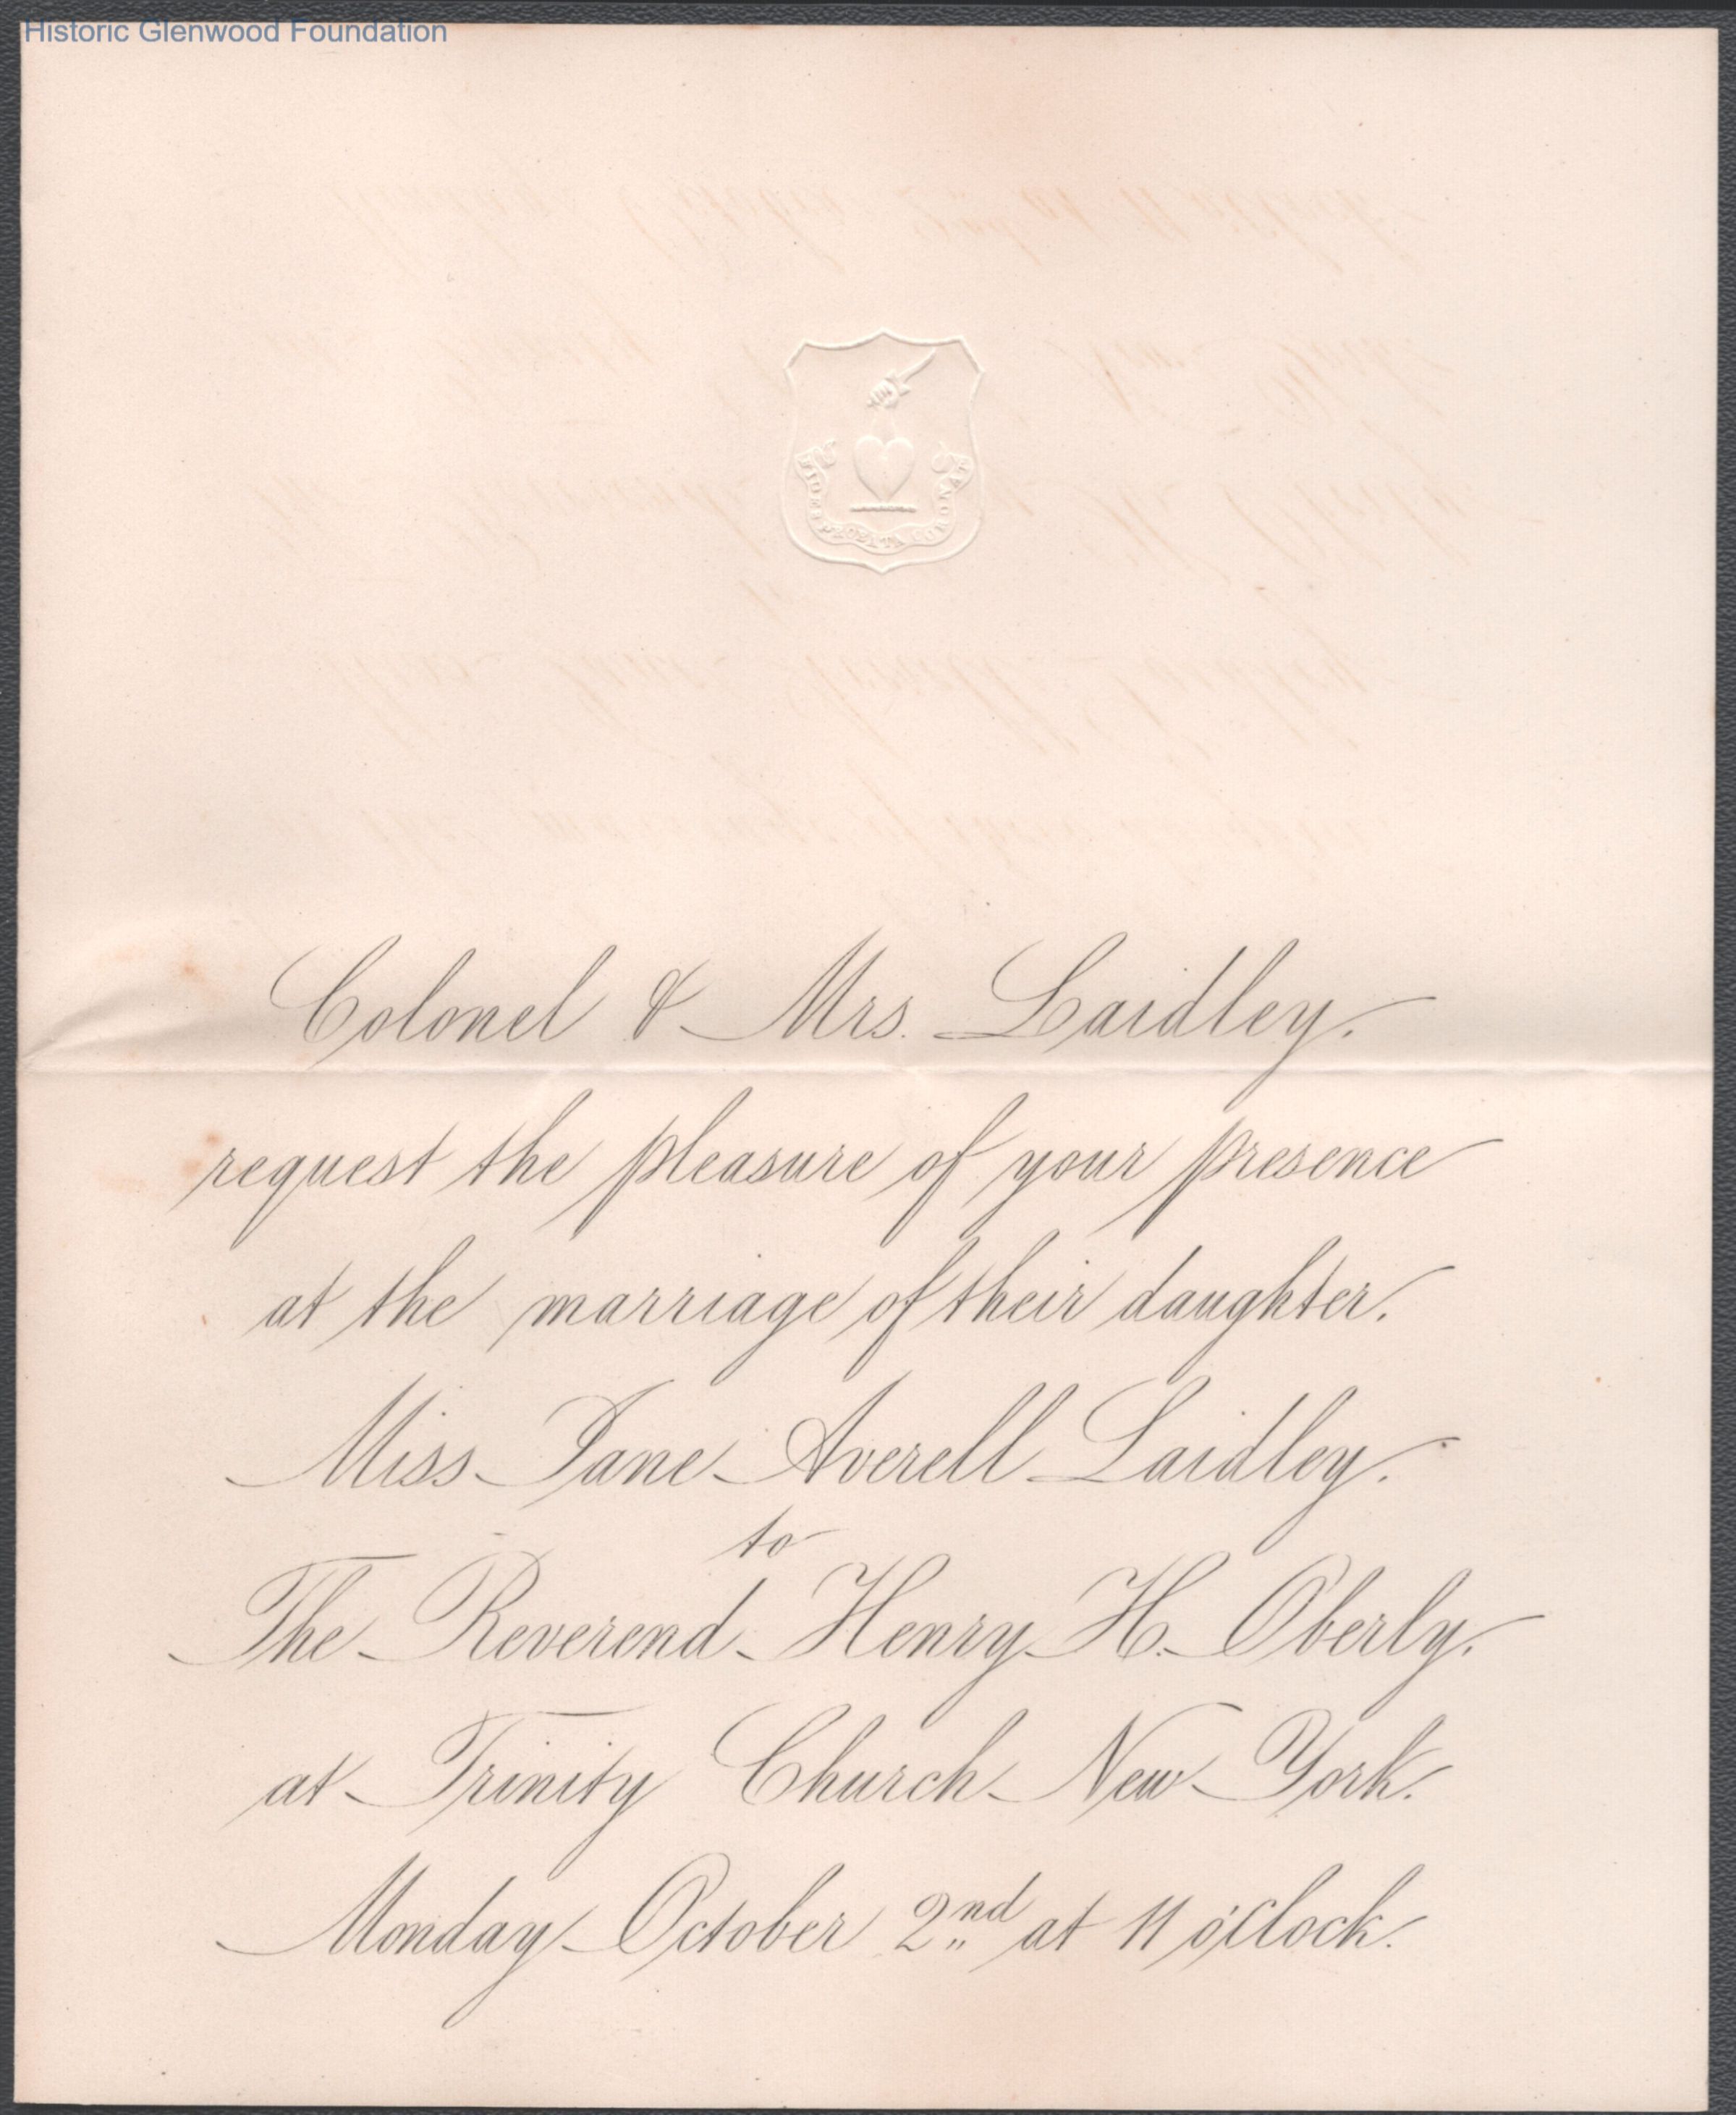 Historic Glenwood Foundation
FIDES PROBATA CORONAT
Colonel & Mrs. Laidley.
request the pleasure of your presence
at the marriage of their daughter.
Miss Jane Averell Laidley.
to
The Reverend Henry H. Oberly.
at Trinity Church New York.
Monday October 2nd at 11 o'Clock.